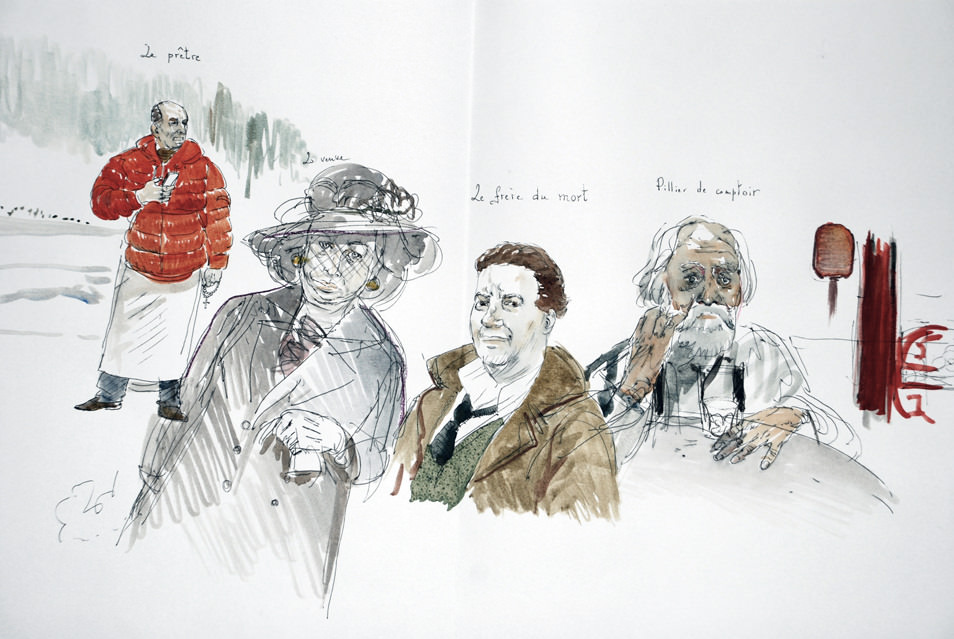 Le prêtre
La veuve
Le frère du mort
Pillier de comptoir